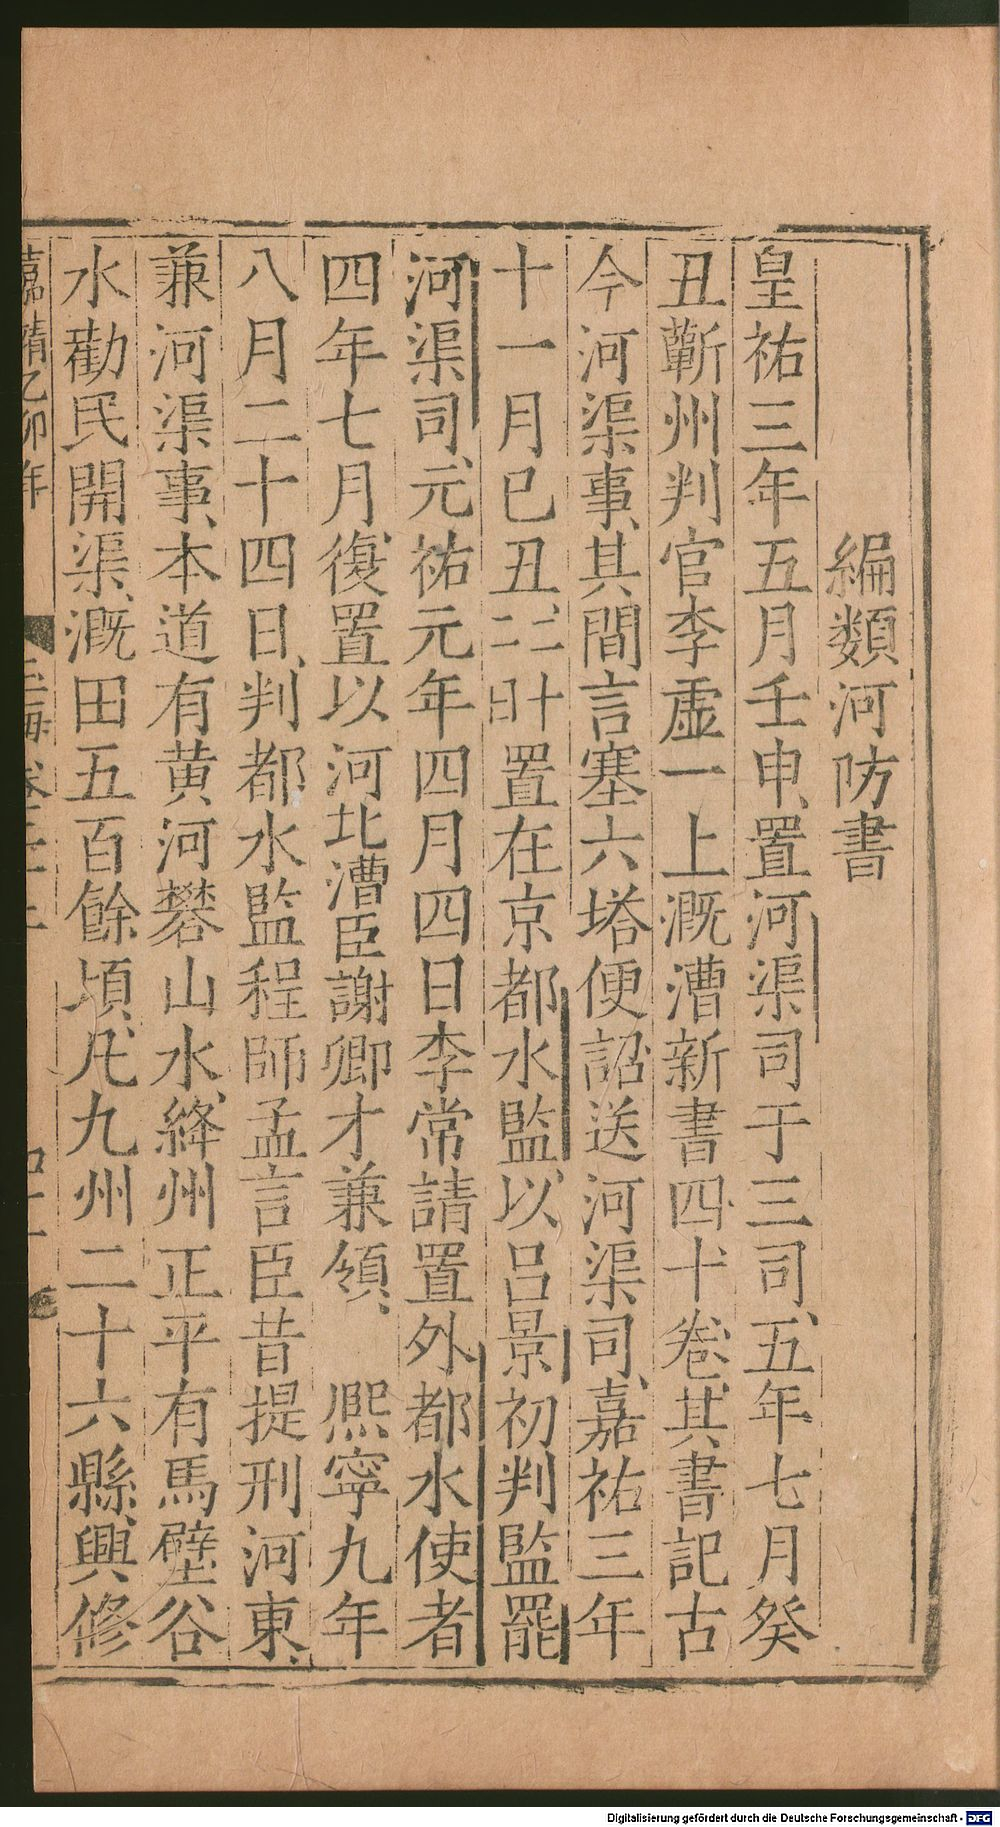 編類河防書
皇祐三年五月壬申、置河渠司于三司、五年七月癸
丑蘄州判官李虛一上溉漕新書四十卷、其書記古
今河渠事、其間言塞六塔便、詔送河渠司、嘉祐三年
十一月已丑、二十二日置在京都水監、以呂景初判監罷
河渠司、元祐元年四月四日李常請置外都水使者
四年七月、復置以河北漕臣謝卿才兼領、 熈寧九年
八月二十四日、判都水監程師孟言臣昔提刑河東、
兼河渠事、本道有黄河礬山水、絳州正平有馬壁谷
水勸民開渠、溉田五百餘頃、凡九州二十六縣、興修
嘉靖乙卯年
Digitalisierung gefördert durch die Deutsche Forschungsgemeinschaft - DFG